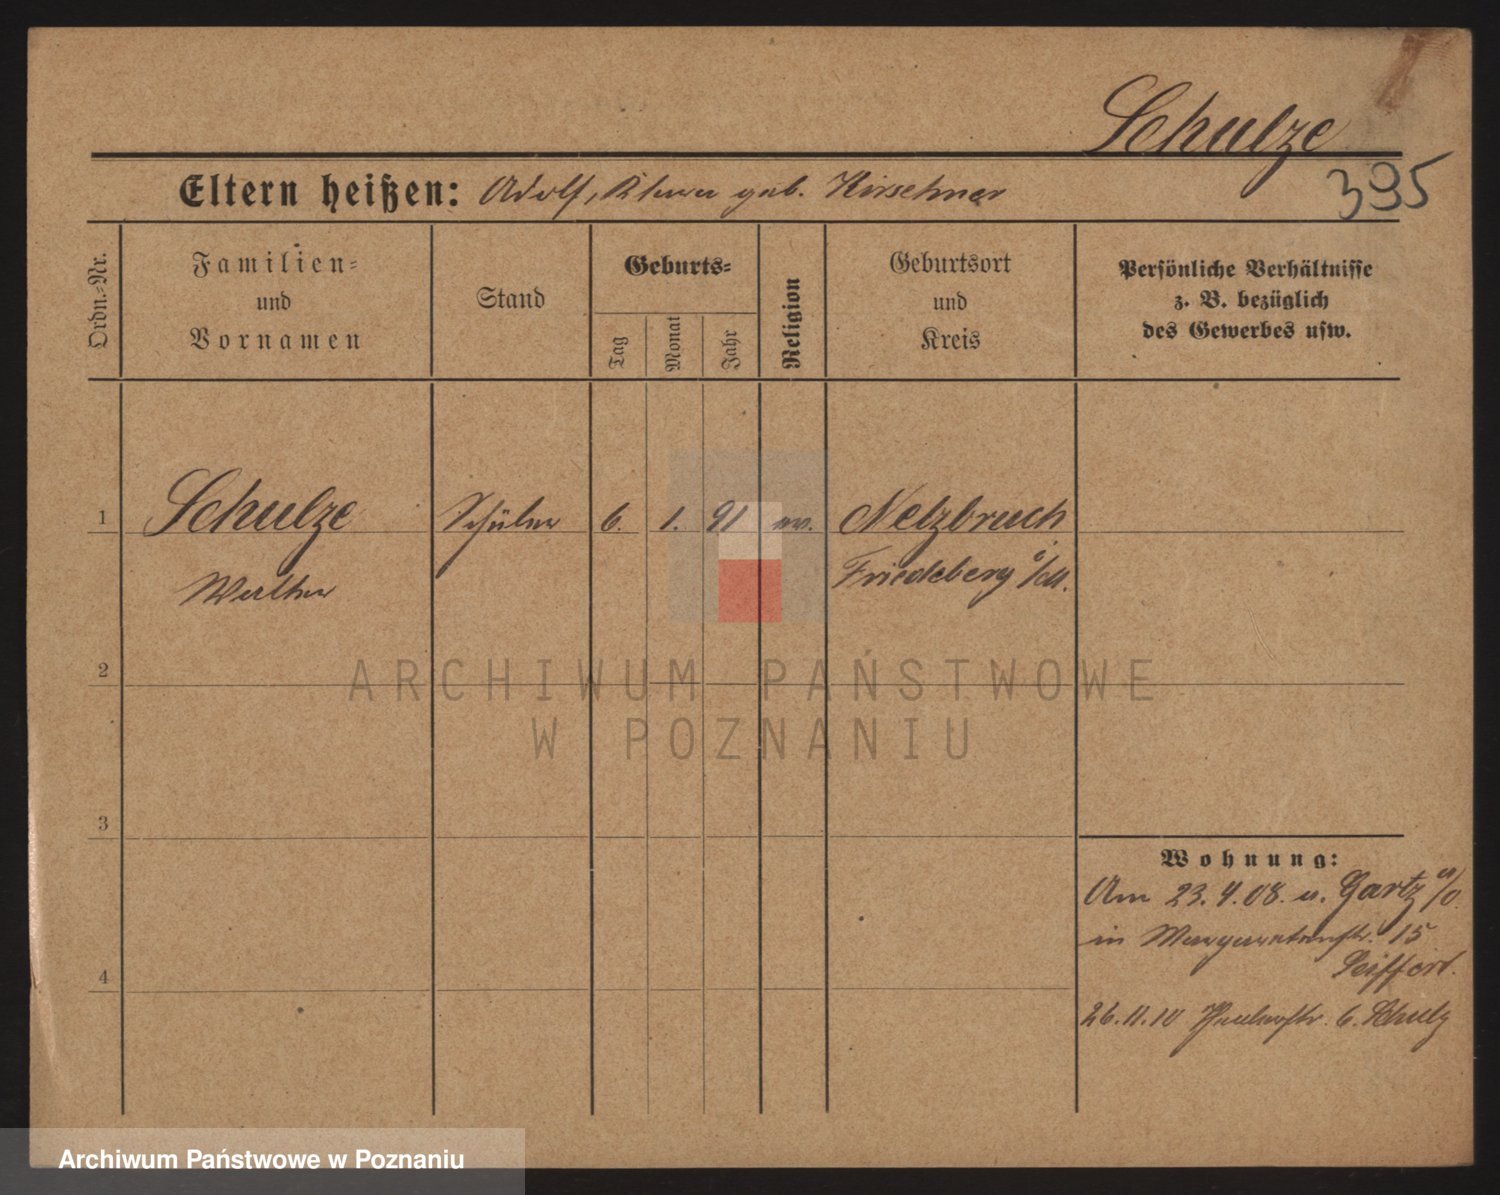 Schulze
395
Eltern heißen: Adolf, geb. Kirschner
Ordn.-Nr.
Familien-
und
Vornamen
Stand
Geburts-
Tag
Monat
Jahr
Religion
Geburtsort
und
Kreis
Persönliche Verhältnisse
z. B. bezüglich
des Gewerbes usw.
1 Schulze Schüler 6. 1. 91 ev. Netzbruch
Walther Friedeberg
2
ARCHIWUM PAŃSTWOWE
W POZNANIU
3
Wohnung:
Am 23.4.08. v. Gartz a/O.
in Margaretenstr. 15
Seiffert.
4
26.11.10 6. Schulz
Archiwum Państwowe w Poznaniu